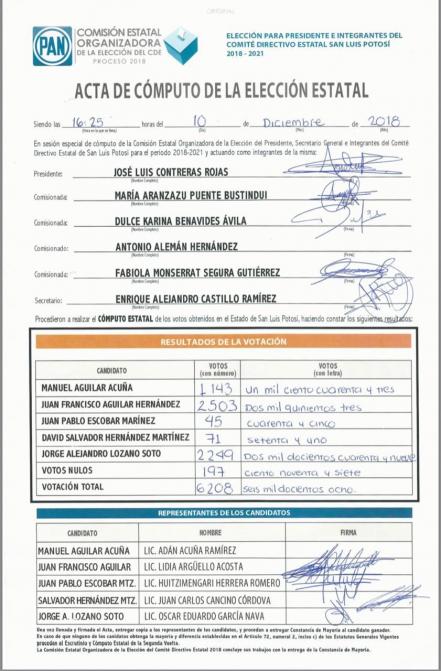 PAN
COMISIÓN ESTATAL
ORGANIZADORA
DE LA ELECCIÓN DEL CDE
PROCESO 2018
ELECCIÓN PARA PRESIDENTE E INTEGRANTES DEL
COMITÉ DIRECTIVO ESTATAL SAN LUIS POTOSÍ
2018 - 2021
ACTA DE CÓMPUTO DE LA ELECCIÓN ESTATAL
Siendo las 16:25 horas del 10 de Diciembre de 2018
(Hora en la que se llena) (Día) (Mes) (Año)
En sesión especial de cómputo de la Comisión Estatal Organizadora de la Elección del Presidente, Secretario General e Integrantes del Comité
Directivo Estatal de San Luis Potosí para el periodo 2018-2021 y actuando como integrantes de la misma:
Presidente: JOSÉ LUIS CONTRERAS ROJAS
(Nombre Completo) (Firma)
Comisionada: MARÍA ARANZAZU PUENTE BUSTINDUI
(Nombre Completo) (Firma)
Comisionada: DULCE KARINA BENAVIDES ÁVILA
(Nombre Completo) (Firma)
Comisionado: ANTONIO ALEMÁN HERNÁNDEZ
(Nombre Completo) (Firma)
Comisionada: FABIOLA MONSERRAT SEGURA GUTIÉRREZ
(Nombre Completo) (Firma)
Secretario: ENRIQUE ALEJANDRO CASTILLO RAMÍREZ
(Nombre Completo) (Firma)
Procedieron a realizar el CÓMPUTO ESTATAL de los votos obtenidos en el Estado de San Luis Potosí, haciendo constar los siguientes resultados:
RESULTADOS DE LA VOTACIÓN
CANDIDATO VOTOS (con número) VOTOS (con letra)
MANUEL AGUILAR ACUÑA 1 143 Un mil ciento cuarenta y tres
JUAN FRANCISCO AGUILAR HERNÁNDEZ 2503 Dos mil quinientos tres
JUAN PABLO ESCOBAR MARÍNEZ 45 cuarenta y cinco
DAVID SALVADOR HERNÁNDEZ MARTÍNEZ 71 setenta y uno
JORGE ALEJANDRO LOZANO SOTO 2249 Dos mil docientos cuarenta y nueve
VOTOS NULOS 197 ciento noventa y siete
VOTACIÓN TOTAL 6208 seis mil docientos ocho.
REPRESENTANTES DE LOS CANDIDATOS
CANDIDATO NOMBRE FIRMA
MANUEL AGUILAR ACUÑA LIC. ADÁN ACUÑA RAMÍREZ
JUAN FRANCISCO AGUILAR LIC. LIDIA ARGÜELLO ACOSTA
JUAN PABLO ESCOBAR MTZ. LIC. HUITZIMENGARI HERRERA ROMERO
SALVADOR HERNÁNDEZ MTZ. LIC. JUAN CARLOS CANCINO CÓRDOVA
JORGE A. LOZANO SOTO LIC. OSCAR EDUARDO GARCÍA NAVA
Una vez llenada y firmada el Acta, entregar copia a los representantes de los candidatos, y procedan a entregar Constancia de Mayoría al candidato ganador.
En caso de que ninguno de los candidatos obtenga la mayoría y diferencia establecidas en el Artículo 72, numeral 2, inciso c) de los Estatutos Generales Vigentes
procédase al Escrutinio y Cómputo Estatal de la Segunda Vuelta.
La Comisión Estatal Organizadora de la Elección del Comité Directivo Estatal 2018 concluye sus trabajos con la entrega de la Constancia de Mayoría.